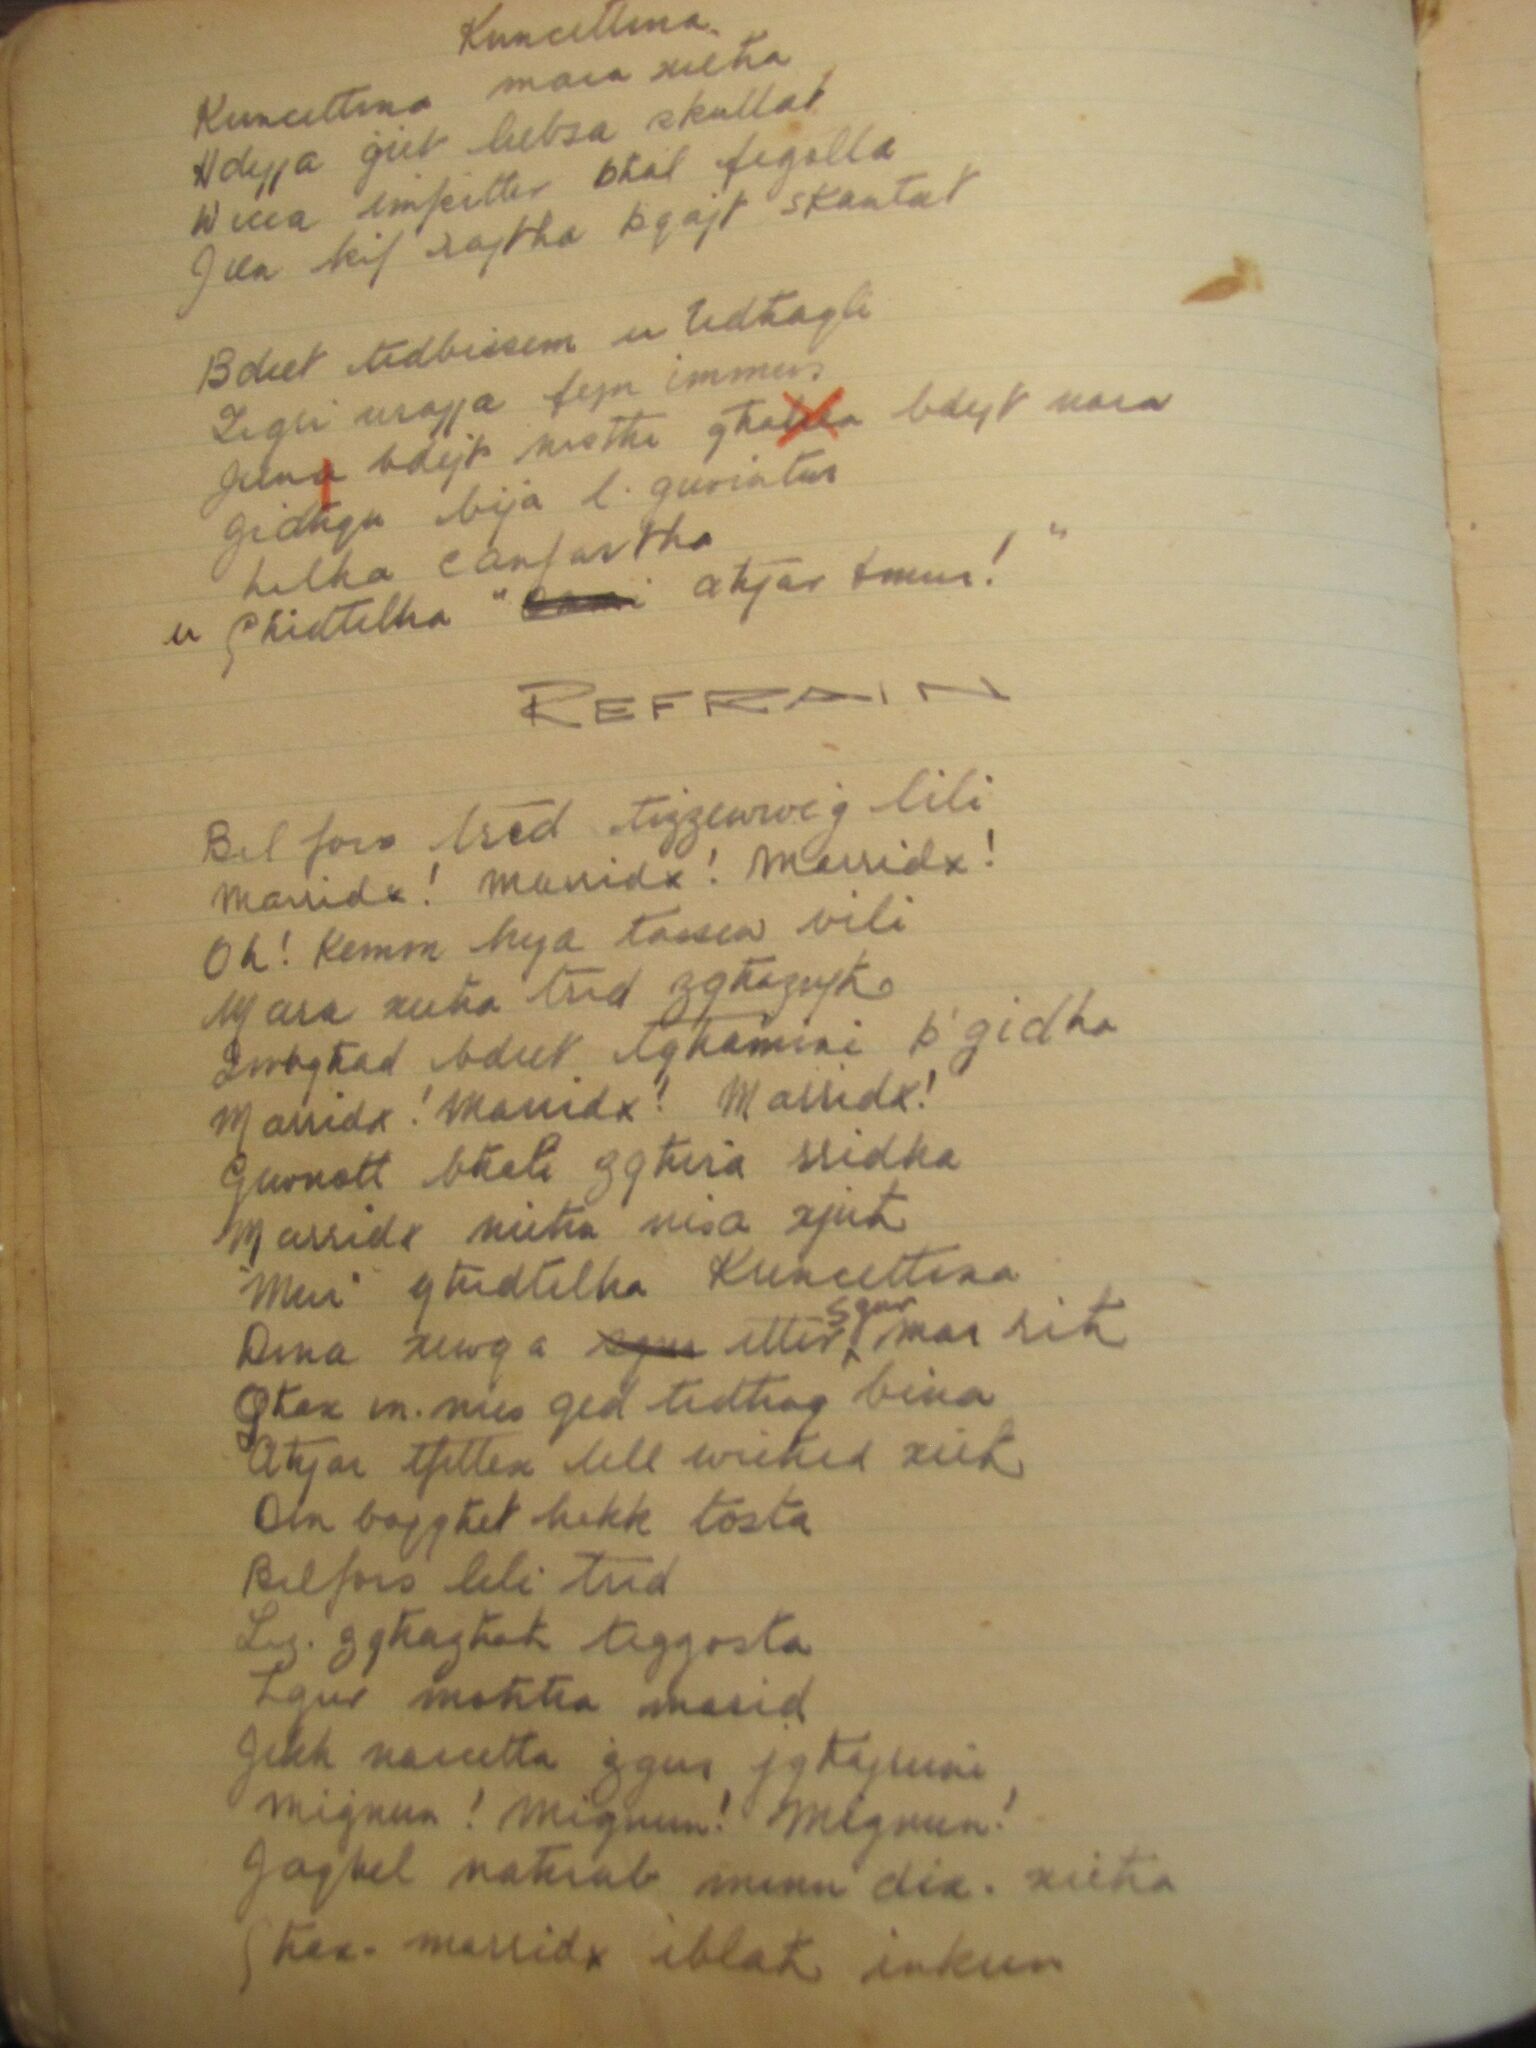 Kuncettina.
Kuncettina mara xieħa
Ħdejja ġiet liebsa skullat
Wiċċa impitter bħal fegolla
Jien kif rajtha bqajt skantat
Bdiet tidbissem u tidħaqli
Tiġri warajja fejn immur
Jiena bdejt nistħi għalhekk bdejt nara
Jidħqu bija l. ġurnatur
hekka ċanfartha
u għidtilha " aħjar tmur! "
REFRAIN
Bil fors trid tiżżewweġ lili
Marridx! Marridx! Marridx!
Oh! Kemm hija tassew vili
Mara xieħa trid żgħażugħ
Imbgħad bdiet tgħamini b'idha
Marridx! Marridx! Marridx!
Ġuvnott bħali żgħira rridha
Marridx nieħu nisa xjuħ
"Mur" għidtilha Kuncettina
Dina xewqa ittir squr mar riħ
Għax in. nies qed tidħaq bina
Aħjar tfittex lill wieħed xiħ
Din baqgħet hekk tosta
Bilfors lili trid
Liż. żgħażagħ tiggosta
Tqur moħħha marid
Jekk naċċetta żgur jgħajruni
Mignun! Mignun! Mignun!
Jaqbel naħrab minn din. xieħa
Għax. marridx iblaħ inkun